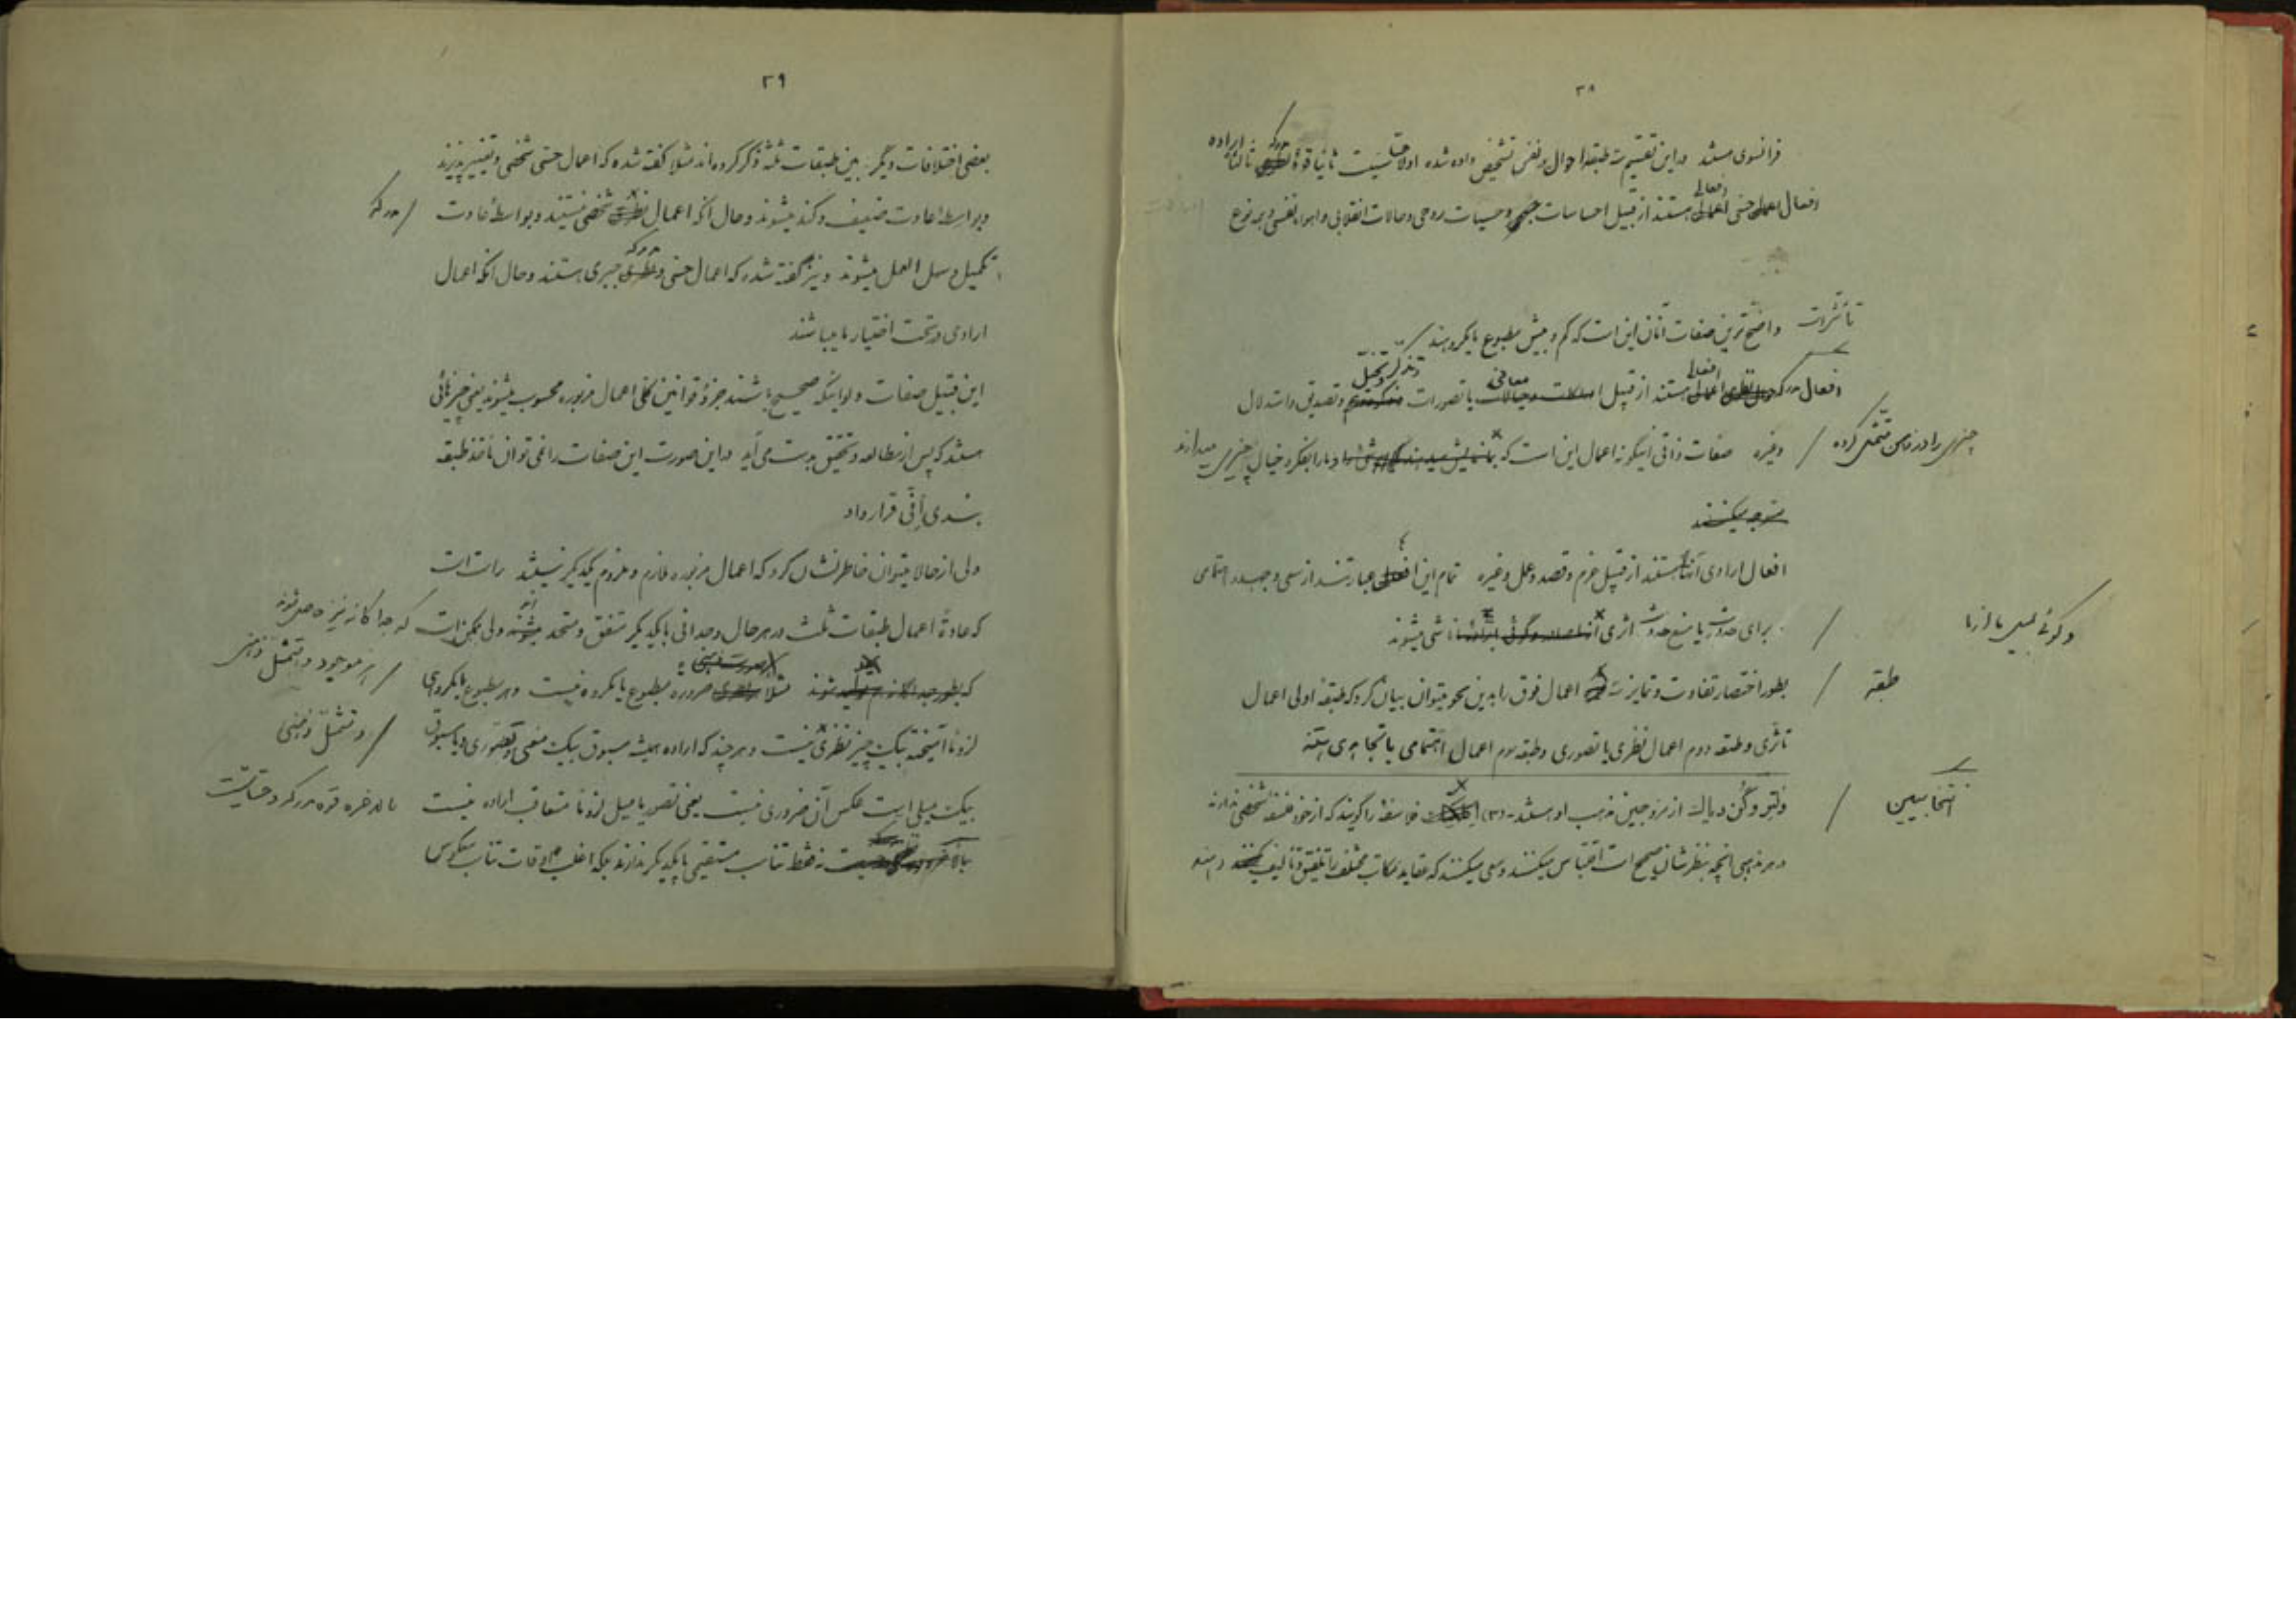 ۳۸
فرانسوی هستند در این تقسیم سه طبقه احوال در نفس تشخیص داده شده اولا حسّاسیت ثانیا قوهٔ مدرکه ثالثا اراده
افعال حسی افعالی هستند از قبیل احساسات و حسیات روحی و حالات انقلابی و اهواء نفسی و هر نوع
تأثرات واضح ترین صفات آنان این است که کم و بیش مطبوع یا مکروهند
افعال مدرکه افعالی هستند از قبیل معانی یا تصورات و تذکر و تخیل و تصدیق و استدلال
وغیره صفات ذاتی اینگونه اعمال این است که چیزی را در ذهن متمثل کرده و ما را بفکر و خیال چیزی میاندازند
متوجه میکنند
افعال ارادی آنها هستند از قبیل عزم و قصد و عمل وغیره تمام این افعال عبارتند از سعی و جهد و اهتمامی
برای حدوث یا منع حدوث اثری که گوئی از ما ناشی میشوند
بطور اختصار تفاوت و تمایز سه طبقه اعمال فوق را بدین نحو میتوان بیان کرد که طبقه اولی اعمال
تأثری و طبقه دوم اعمال نظری یا تصوری و طبقه سوم اعمال اهتمامی یا مجاهدی هستند
از مروجین مذهب او هستند - (۳) انتخابیین فلاسفه را گویند که از خود فلسفهٔ شخصی ندارند
در هر مذهبی آنچه بنظرشان صحیح است اقتباس میکنند و سعی میکنند که عقاید مکاتب مختلف را تلفیق و تألیف دهند
۳۹
بعضی اختلافات دیگر بین طبقات ثلثه ذکر کرده اند مثلا گفته شده که اعمال حسی شخصی و تغییر پذیرند
و بواسطهٔ عادت ضعیف و کند میشوند و حال آنکه اعمال مدرکه شخصی نیستند و بواسطهٔ عادت
تکمیل و سهل العمل میشوند و نیز گفته شده که اعمال حسی و مدرکه جبری هستند و حال آنکه اعمال
ارادی در تحت اختیار ما میباشند
این قبیل صفات ولو اینکه صحیح باشند جزو قوانین کلی اعمال مزبوره محسوب میشوند یعنی چیزهائی
هستند که پس از مطالعه و تحقیق بدست می آید در این صورت این صفات را نمی توان مأخذ طبقه
بندی قرار داد
ولی از حالا میتوان خاطرنشان کرد که اعمال مزبوره لازم و ملزوم یکدیگر نیستند راست است
که عادةً اعمال طبقات ثلث در هر حال وجدانی با یکدیگر متفق و متحد اند ولی ممکن است که جداگانه نیز حاصل شوند
که بطور جداگانه هم تولید شوند مثلا هر موجود و متمثل ذهنی ضروره مطبوع یا مکروه نیست و هر مطبوع یا مکروهی
لزوماً آمیخته بیک چیز نظری و متمثل ذهنی نیست و هر چند که اراده همیشه مسبوق بیک معنی و تصوری و یا مسبوق
بیک میلی است عکس آن ضروری نیست یعنی تصور یا میل لزوماً متعاقب اراده نیست
بالاخره قوه مدرکه و حسّاسیت نه فقط تناسب مستقیمی با یکدیگر ندارند بلکه اغلب اوقات تناسب معکوس